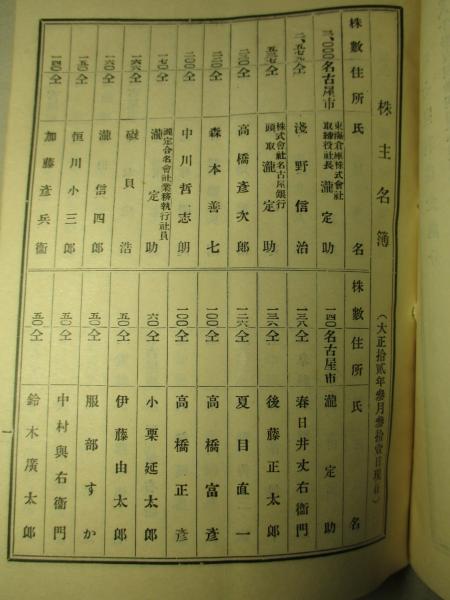 株主名簿
(大正拾貳年參月參拾壹日現在)
株數 住所 氏名
三、000 名古屋市 東海倉庫株式會社取締役社長 瀧定助
仝 淺野信治
仝 株式會社名古屋銀行頭取 瀧定助
仝 高橋彥次郎
二二0 仝 森本善七
二00 仝 中川哲志朗
一七0 仝 瀧定合名會社業務執行社員 瀧定助
仝 磯貝浩
一六0 仝 瀧信四郎
一五0 仝 恒川小三郎
一四0 仝 加藤彥兵衞
株數 住所 氏名
一四0 名古屋市 瀧定助
一三八 仝 春日井丈右衞門
仝 後藤正太郎
仝 夏目直一
一00 仝 高橋富彥
一00 仝 高橋正彥
六0 仝 小栗延太郎
五0 仝 伊藤由太郎
五0 仝 服部すか
五0 仝 中村與右衞門
五0 仝 鈴木廣太郎
一